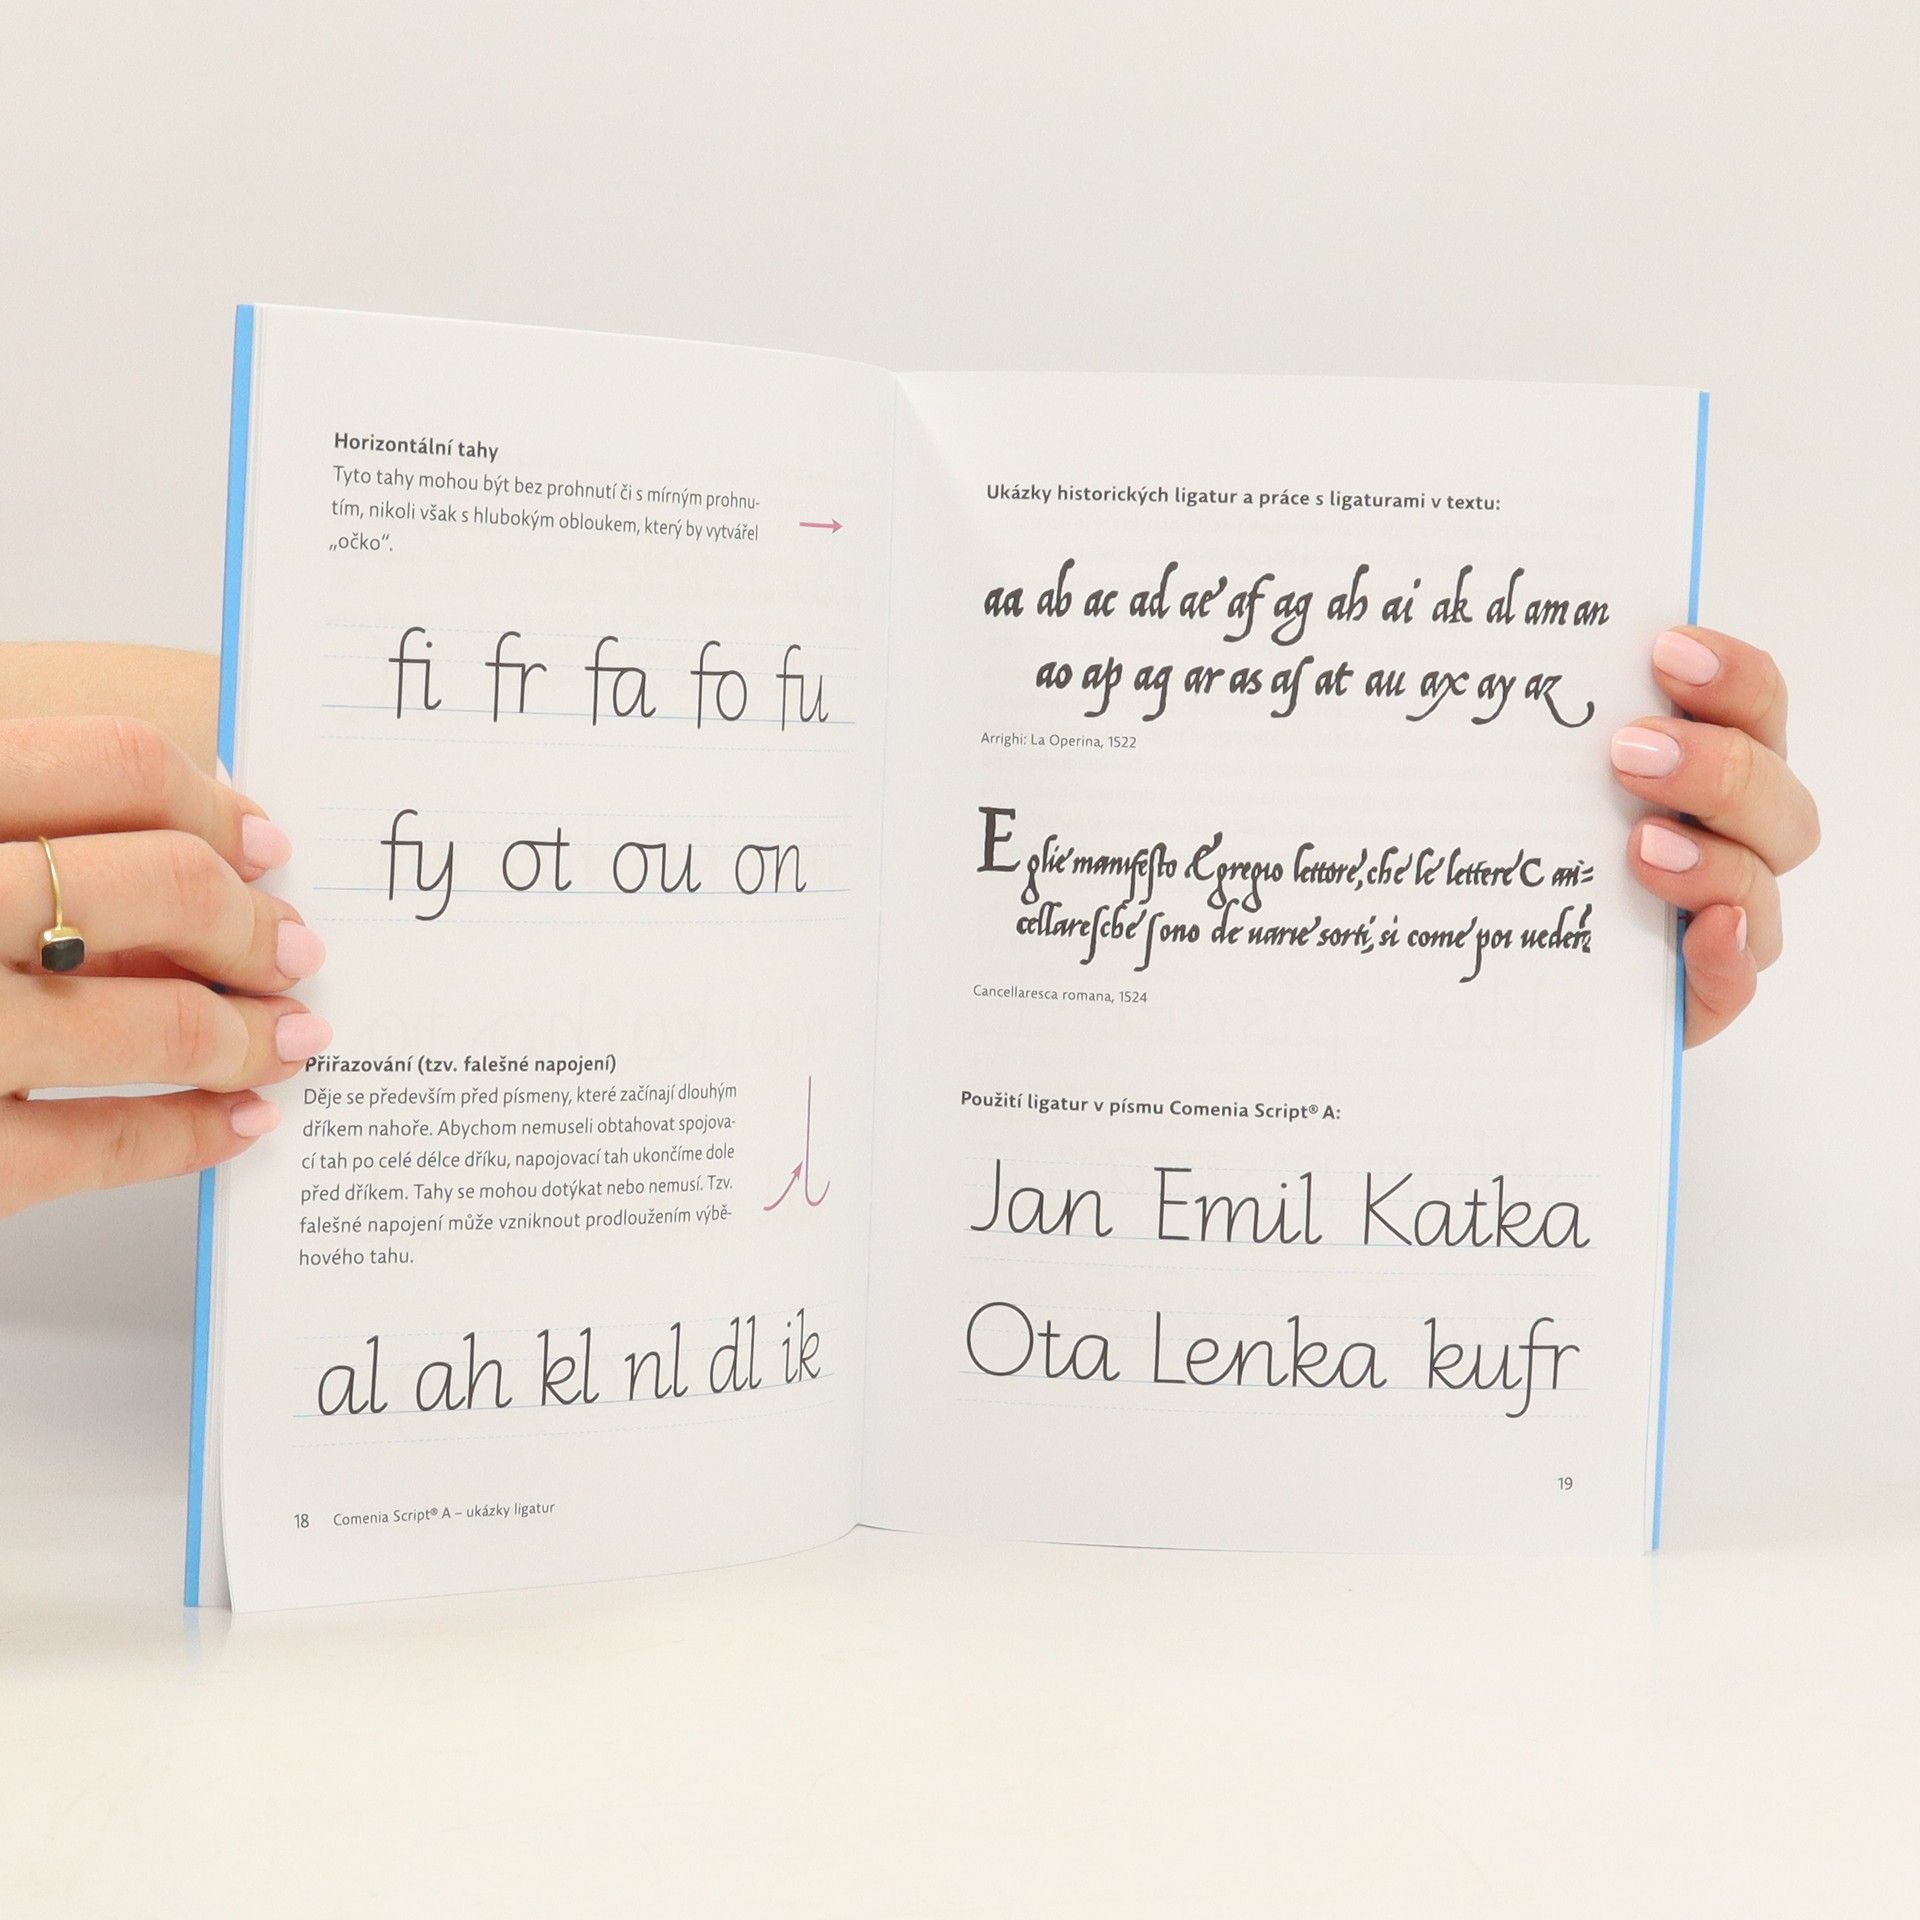 Horizontální tahy
Tyto tahy mohou být bez prohnutí či s mírným prohnu-
tím, nikoli však s hlubokým obloukem, který by vytvářel
„očko“.
fi fr fa fo fu
fy ot ou on
Přiřazování (tzv. falešné napojení)
Děje se především před písmeny, které začínají dlouhým
dříkem nahoře. Abychom nemuseli obtahovat spojova-
cí tah po celé délce dříku, napojovací tah ukončíme dole
před dříkem. Tahy se mohou dotýkat nebo nemusí. Tzv.
falešné napojení může vzniknout prodloužením výbě-
hového tahu.
al ah kl nl dl ik
18 Comenia Script® A – ukázky ligatur
Ukázky historických ligatur a práce s ligaturami v textu:
aa ab ac ad ae af ag ah ai ak al am an
ao ap aq ar as aſ at au ax ay az
Arrighi: La Operina, 1522
Eglie manifeſto Egregio lettore, che le lettere Can=
cellareſche ſono de uarie sorti, si come poi ueder
Cancellaresca romana, 1524
Použití ligatur v písmu Comenia Script® A:
Jan Emil Katka
Ota Lenka kufr
19